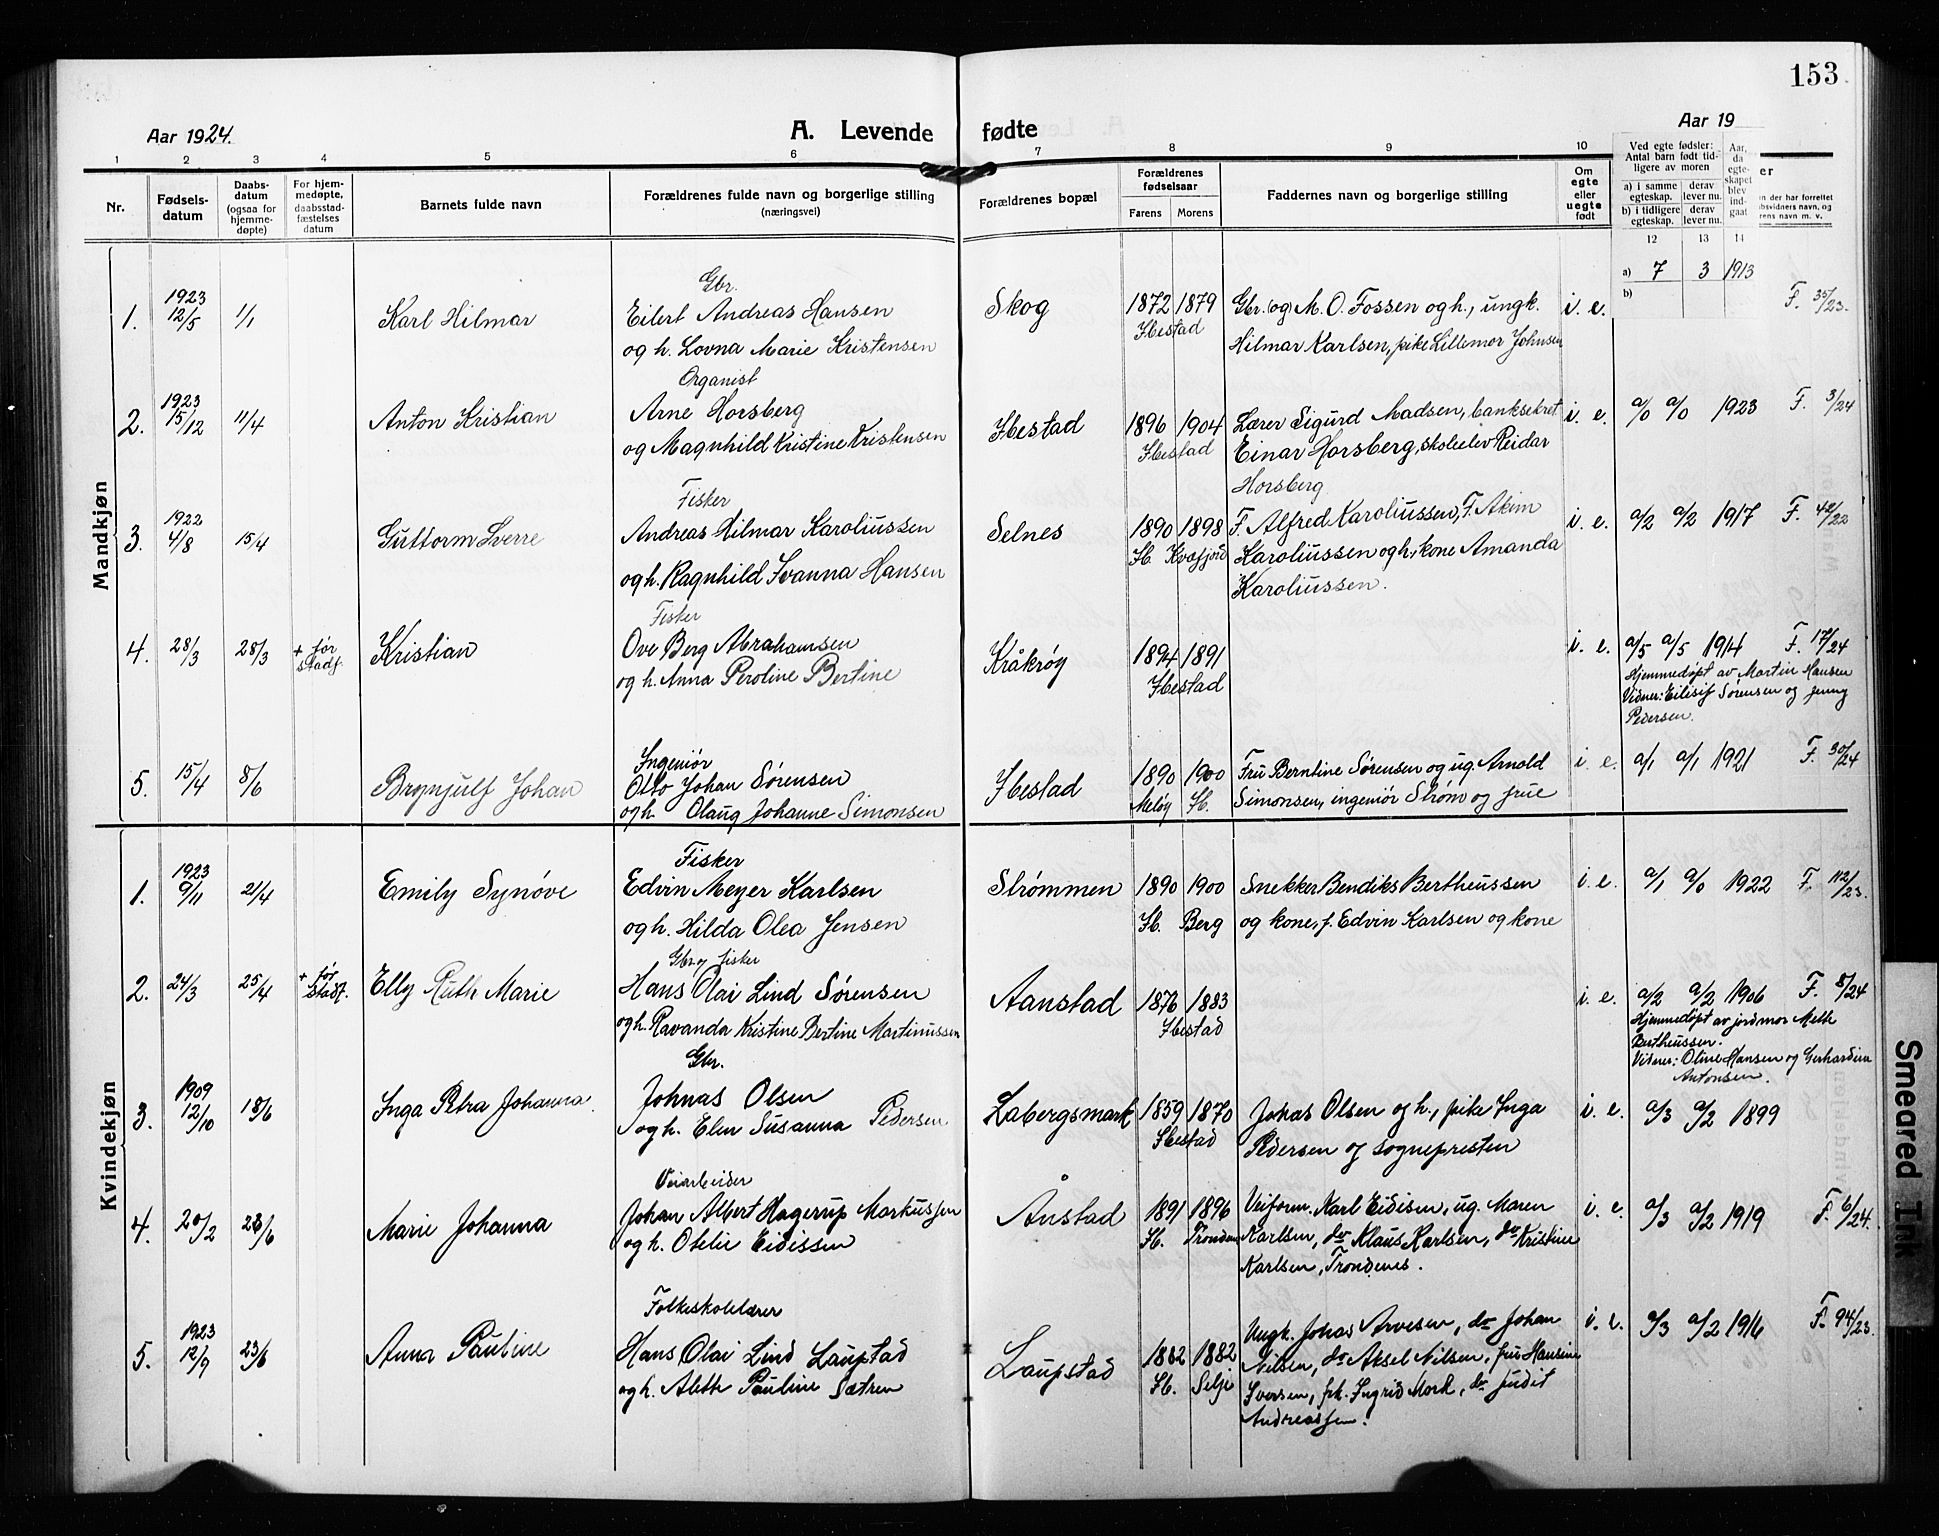 153
Aar 1924.
A. Levende fødte
Aar 19
1 2 3 4 5 6 7 8 9 10
Nr.
Fødsels-
datum
Daabs-
datum
(ogsaa for
hjemme-
døpte)
For hjem-
medøpte,
daabsstad-
fæstelses
datum
Barnets fulde navn
Forældrenes fulde navn og borgerlige stilling
(næringsvei)
Forældrenes bopæl
Forældrenes
fødselsaar
Farens Morens
Faddernes navn og borgerlige stilling
Om
egte
eller
uegte
født
Ved egte fødsler:
Antal barn født tid-
ligere av moren
a) i samme
egteskap.
derav
lever nu.
b) i tidligere
egteskap.
derav
lever nu.
Aar,
da
egte-
skapet
blev
ind-
gaat
er
n der har forrettet
bsvidners navn, og
rens navn m. v.
12 13 14
a) 7 3 1913
b)
Mandkjøn
1. 1923 12/5 1/1 Karl Hilmar
Gbr.
Eilert Andreas Hansen
og h. Lovna Marie Kristensen
Skog 1872 1879
Ibestad
Gbr. (og) M. O. Fossen og h., ungk.
Hilmar Karlsen, pike Lillemor Johnsen
i. e. F. 35/23.
2. 1923 15/12 11/4 Anton Kristian
Organist
Arne Horsberg
og Magnhild Kristine Kristensen
Ibestad 1896 1904
Ibestad
Lærer Sigurd Madsen, banksekret
Einar Horsberg, skoleelev Reidar
Horsberg
i. e. a/0 a/0 1923 F. 3/24
3. 1922 4/8 15/4 Guttorm Sverre
Fisker
Andreas Hilmar Karoliussen
og h. Ragnhild Ivanna Hansen
Selnes 1890 1898
Ib. Kvæfjord
F. Alfred Karoliussen, F. Akim
Karoliussen og h., kone Amanda
Karoliussen.
i. e. a/2 a/2 1917 F. 42/22
4. 28/3 28/3 + før
stadf. Kristian
Fisker
Ove Berg Abrahamsen
og h. Anna Peroline Bertine
Kråkrøy 1894 1891
Ibestad
i. e. a/5 a/5 1914 F. 17/24
Hjemmedøpt av Martin Hansen
Vidner: Eilisif Sørensen og Jenny
Pedersen.
5. 15/4 8/6 Brynjulf Johan
Ingeniør
Otto Johan Sørensen
og h. Olaug Johanne Simonsen
Ibestad 1890 1900
Meløy Ib.
Fru Berntine Sørensen og ug. Arnold
Simonsen, ingeniør Strøm og frue
i. e. a/1 a/1 1921 F. 30/24
Kvindekjøn
1. 1923 9/11 21/4 Emily Synøve
Fisker
Edvin Meyer Karlsen
og h. Hilda Olea Jensen
Strømmen 1890 1900
Ib. Berg
Snekker Bendiks Bertheussen
og kone, f. Edvin Karlsen og kone
i. e. a/1 a/0 1922 F. 112/23.
2. 24/3 25/4 + før
stadf. Elly Ruth Marie
Gbr. og fisker
Hans Olai Lind Sørensen
og h. Ravanda Kristine Bertine Martinussen
Aanstad 1876 1883
Ibestad
i. e. a/2 a/2 1906 F. 8/24
Hjemmedøpt av jordmor Meth
Bertheussen.
Vidner: Oline Hansen og Gerhardine
Antonsen.
3. 1909 12/10 18/6 Inga Petra Johanna.
Gbr.
Johnas Olsen
og h. Elen Susanna Pedersen
Labergsmark 1859 1870
Ibestad
Johas Olsen og h., pike Inga
Pedersen og sognepresten
i. e. a/3 a/2 1899
4. 20/2 23/6 Marie Johanna
Veiarbeider
Johan Albert Hagerup Markussen
og h. Otelie Eidissen
Ånstad 1891 1896
Ib. Tronden
Veiform. Karl Eidisen, ug. Maren
Karlsen, do Klaus Karlsen, do Kristine
Karlsen, Trondenes.
i. e. a/3 a/2 1919 F. 6/24.
5. 1923 12/9 23/6 Anna Pauline
Folkeskolelærer
Hans Olai Lind Laupstad
og h. Aleth Pauline Sætren
Laupstad 1882 1882
Ib. Selje
Ungk. Johas Arvesen, do Johan
Nilsen, do Aksel Nilsen, fru Hansine
Iversen, frk. Ingrid Mork, do Judit
Andreassen.
i. e. a/3 a/2 1916 F. 94/23.
Smeared Ink